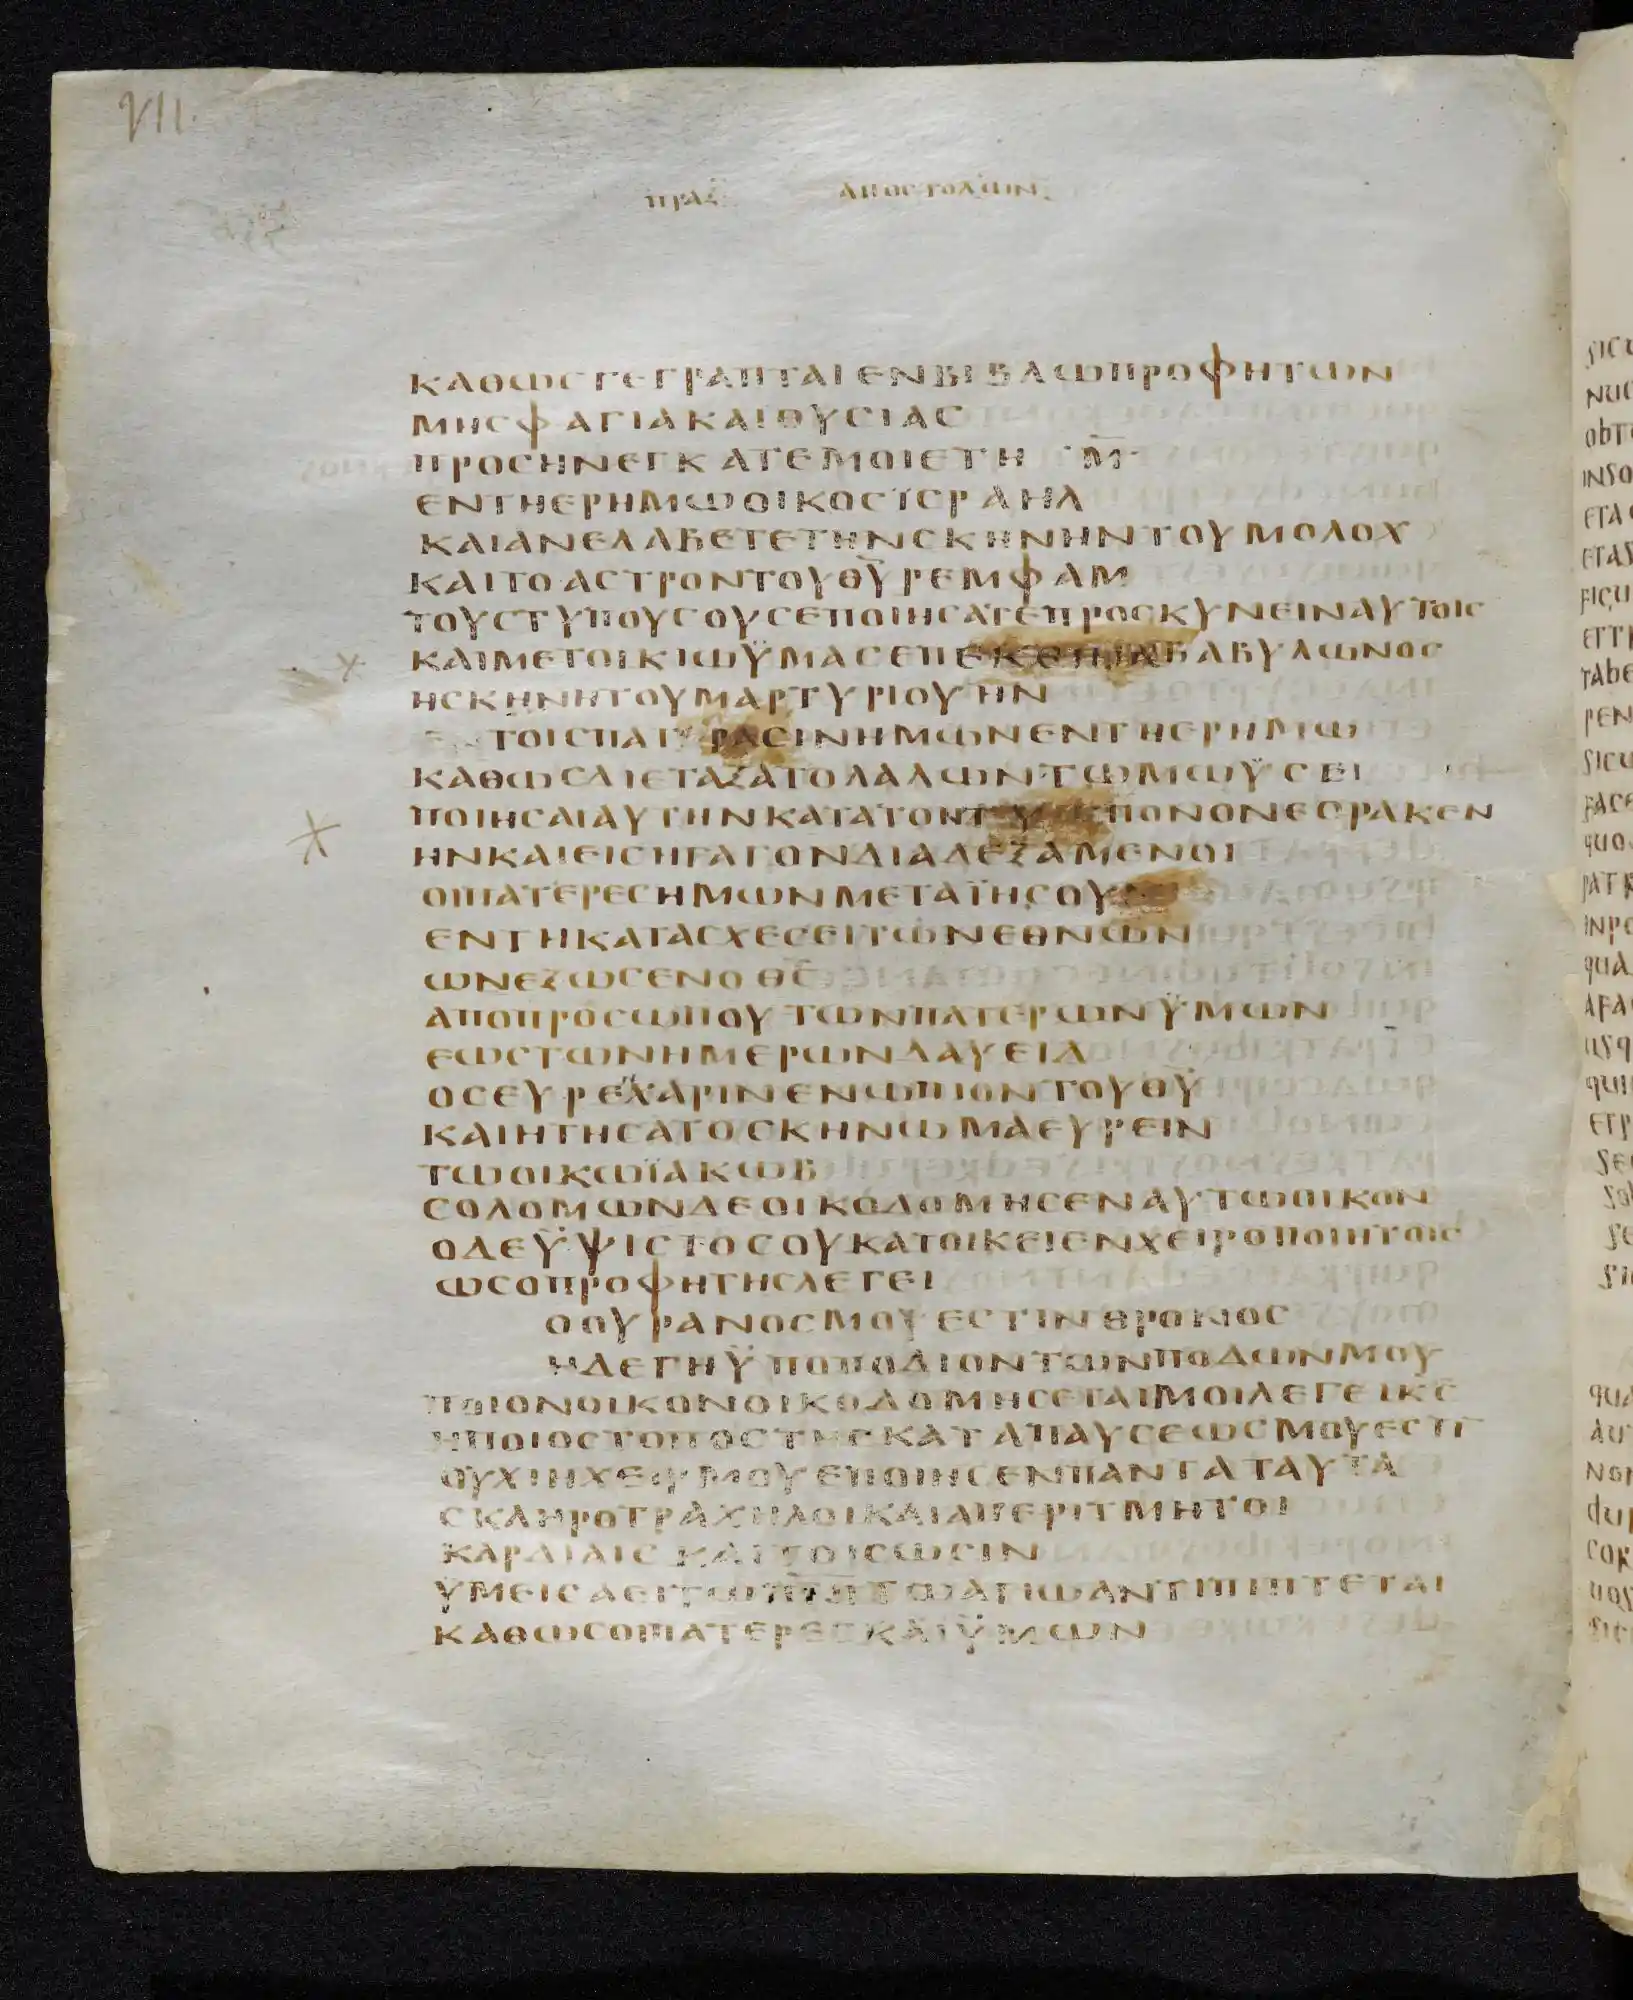 VII.
ΠΡΑΞ ΑΠΟΣΤΟΛΩΝ
ΚΑΘΩΣΓΕΓΡΑΠΤΑΙΕΝΒΙΒΛΩΠΡΟΦΗΤΩΝ
ΜΗΣΦΑΓΙΑΚΑΙΘΥΣΙΑΣ
ΠΡΟΣΗΝΕΓΚΑΤΕΜΟΙΕΤΗ Μ̅
ΕΝΤΗΕΡΗΜΩΟΙΚΟΣΪΣΡΑΗΛ
ΚΑΙΑΝΕΛΑΒΕΤΕΤΗΝΣΚΗΝΗΝΤΟΥΜΟΛΟΧ
ΚΑΙΤΟΑΣΤΡΟΝΤΟΥΘ̅Υ̅ΡΕΜΦΑΜ
ΤΟΥΣΤΥΠΟΥΣΟΥΣΕΠΟΙΗΣΑΤΕΠΡΟΣΚΥΝΕΙΝΑΥΤΟΙΣ
ΚΑΙΜΕΤΟΙΚΙΩΫΜΑΣΕΠΕΚΕΒΑΒΥΛΩΝΟΣ
ΗΣΚΗΝΗΤΟΥΜΑΡΤΥΡΙΟΥΗΝ
ΤΟΙΣΠΑΤΡΑΣΙΝΗΜΩΝΕΝΤΗΕΡΗΜΩ
ΚΑΘΩΣΔΙΕΤΑΞΑΤΟΛΑΛΩΝΤΩΜΩΫΣΕΙ
ΠΟΙΗΣΑΙΑΥΤΗΝΚΑΤΑΤΟΝΤΥΠΟΝΟΝΕΟΡΑΚΕΝ
ΗΝΚΑΙΕΙΣΗΓΑΓΟΝΔΙΑΔΕΞΑΜΕΝΟΙ
ΟΙΠΑΤΕΡΕΣΗΜΩΝΜΕΤΑΪΗΣΟΥ
ΕΝΤΗΚΑΤΑΣΧΕΣΕΙΤΩΝΕΘΝΩΝ
ΩΝΕΞΩΣΕΝΟΘ̅Σ̅
ΑΠΟΠΡΟΣΩΠΟΥΤΩΝΠΑΤΕΡΩΝΫΜΩΝ
ΕΩΣΤΩΝΗΜΕΡΩΝΔΑΥΕΙΔ
ΟΣΕΥΡΕΧΑΡΙΝΕΝΩΠΙΟΝΤΟΥΘ̅Υ̅
ΚΑΙΗΤΗΣΑΤΟΣΚΗΝΩΜΑΕΥΡΕΙΝ
ΤΩΟΙΚΩΪΑΚΩΒ
ΣΟΛΟΜΩΝΔΕΟΙΚΟΔΟΜΗΣΕΝΑΥΤΩΟΙΚΟΝ
ΟΔΕΫΨΙΣΤΟΣΟΥΚΑΤΟΙΚΕΙΕΝΧΕΙΡΟΠΟΙΗΤΟΙΣ
ΩΣΟΠΡΟΦΗΤΗΣΛΕΓΕΙ
ΟΟΥΡΑΝΟΣΜΟΥΕΣΤΙΝΘΡΟΝΟΣ
ΗΔΕΓΗΫΠΟΠΟΔΙΟΝΤΩΝΠΟΔΩΝΜΟΥ
ΠΟΙΟΝΟΙΚΟΝΟΙΚΟΔΟΜΗΣΕΤΑΙΜΟΙΛΕΓΕΙΚ̅Σ̅
ΗΠΟΙΟΣΤΟΠΟΣΤΗΣΚΑΤΑΠΑΥΣΕΩΣΜΟΥΕΣΤΙ̅
ΟΥΧΙΗΧΕΙΡΜΟΥΕΠΟΙΗΣΕΝΠΑΝΤΑΤΑΥΤΑ
ΣΚΛΗΡΟΤΡΑΧΗΛΟΙΚΑΙΑΠΕΡΙΤΜΗΤΟΙ
ΚΑΡΔΙΑΙΣΚΑΙΤΟΙΣΩΣΙΝ
ΫΜΕΙΣΑΕΙΤΩΠ̅Ν̅Ι̅ΤΩΑΓΙΩΑΝΤΙΠΙΠΤΕΤΑΙ
ΚΑΘΩΣΟΙΠΑΤΕΡΕΣΚΑΙΫΜΩΝ